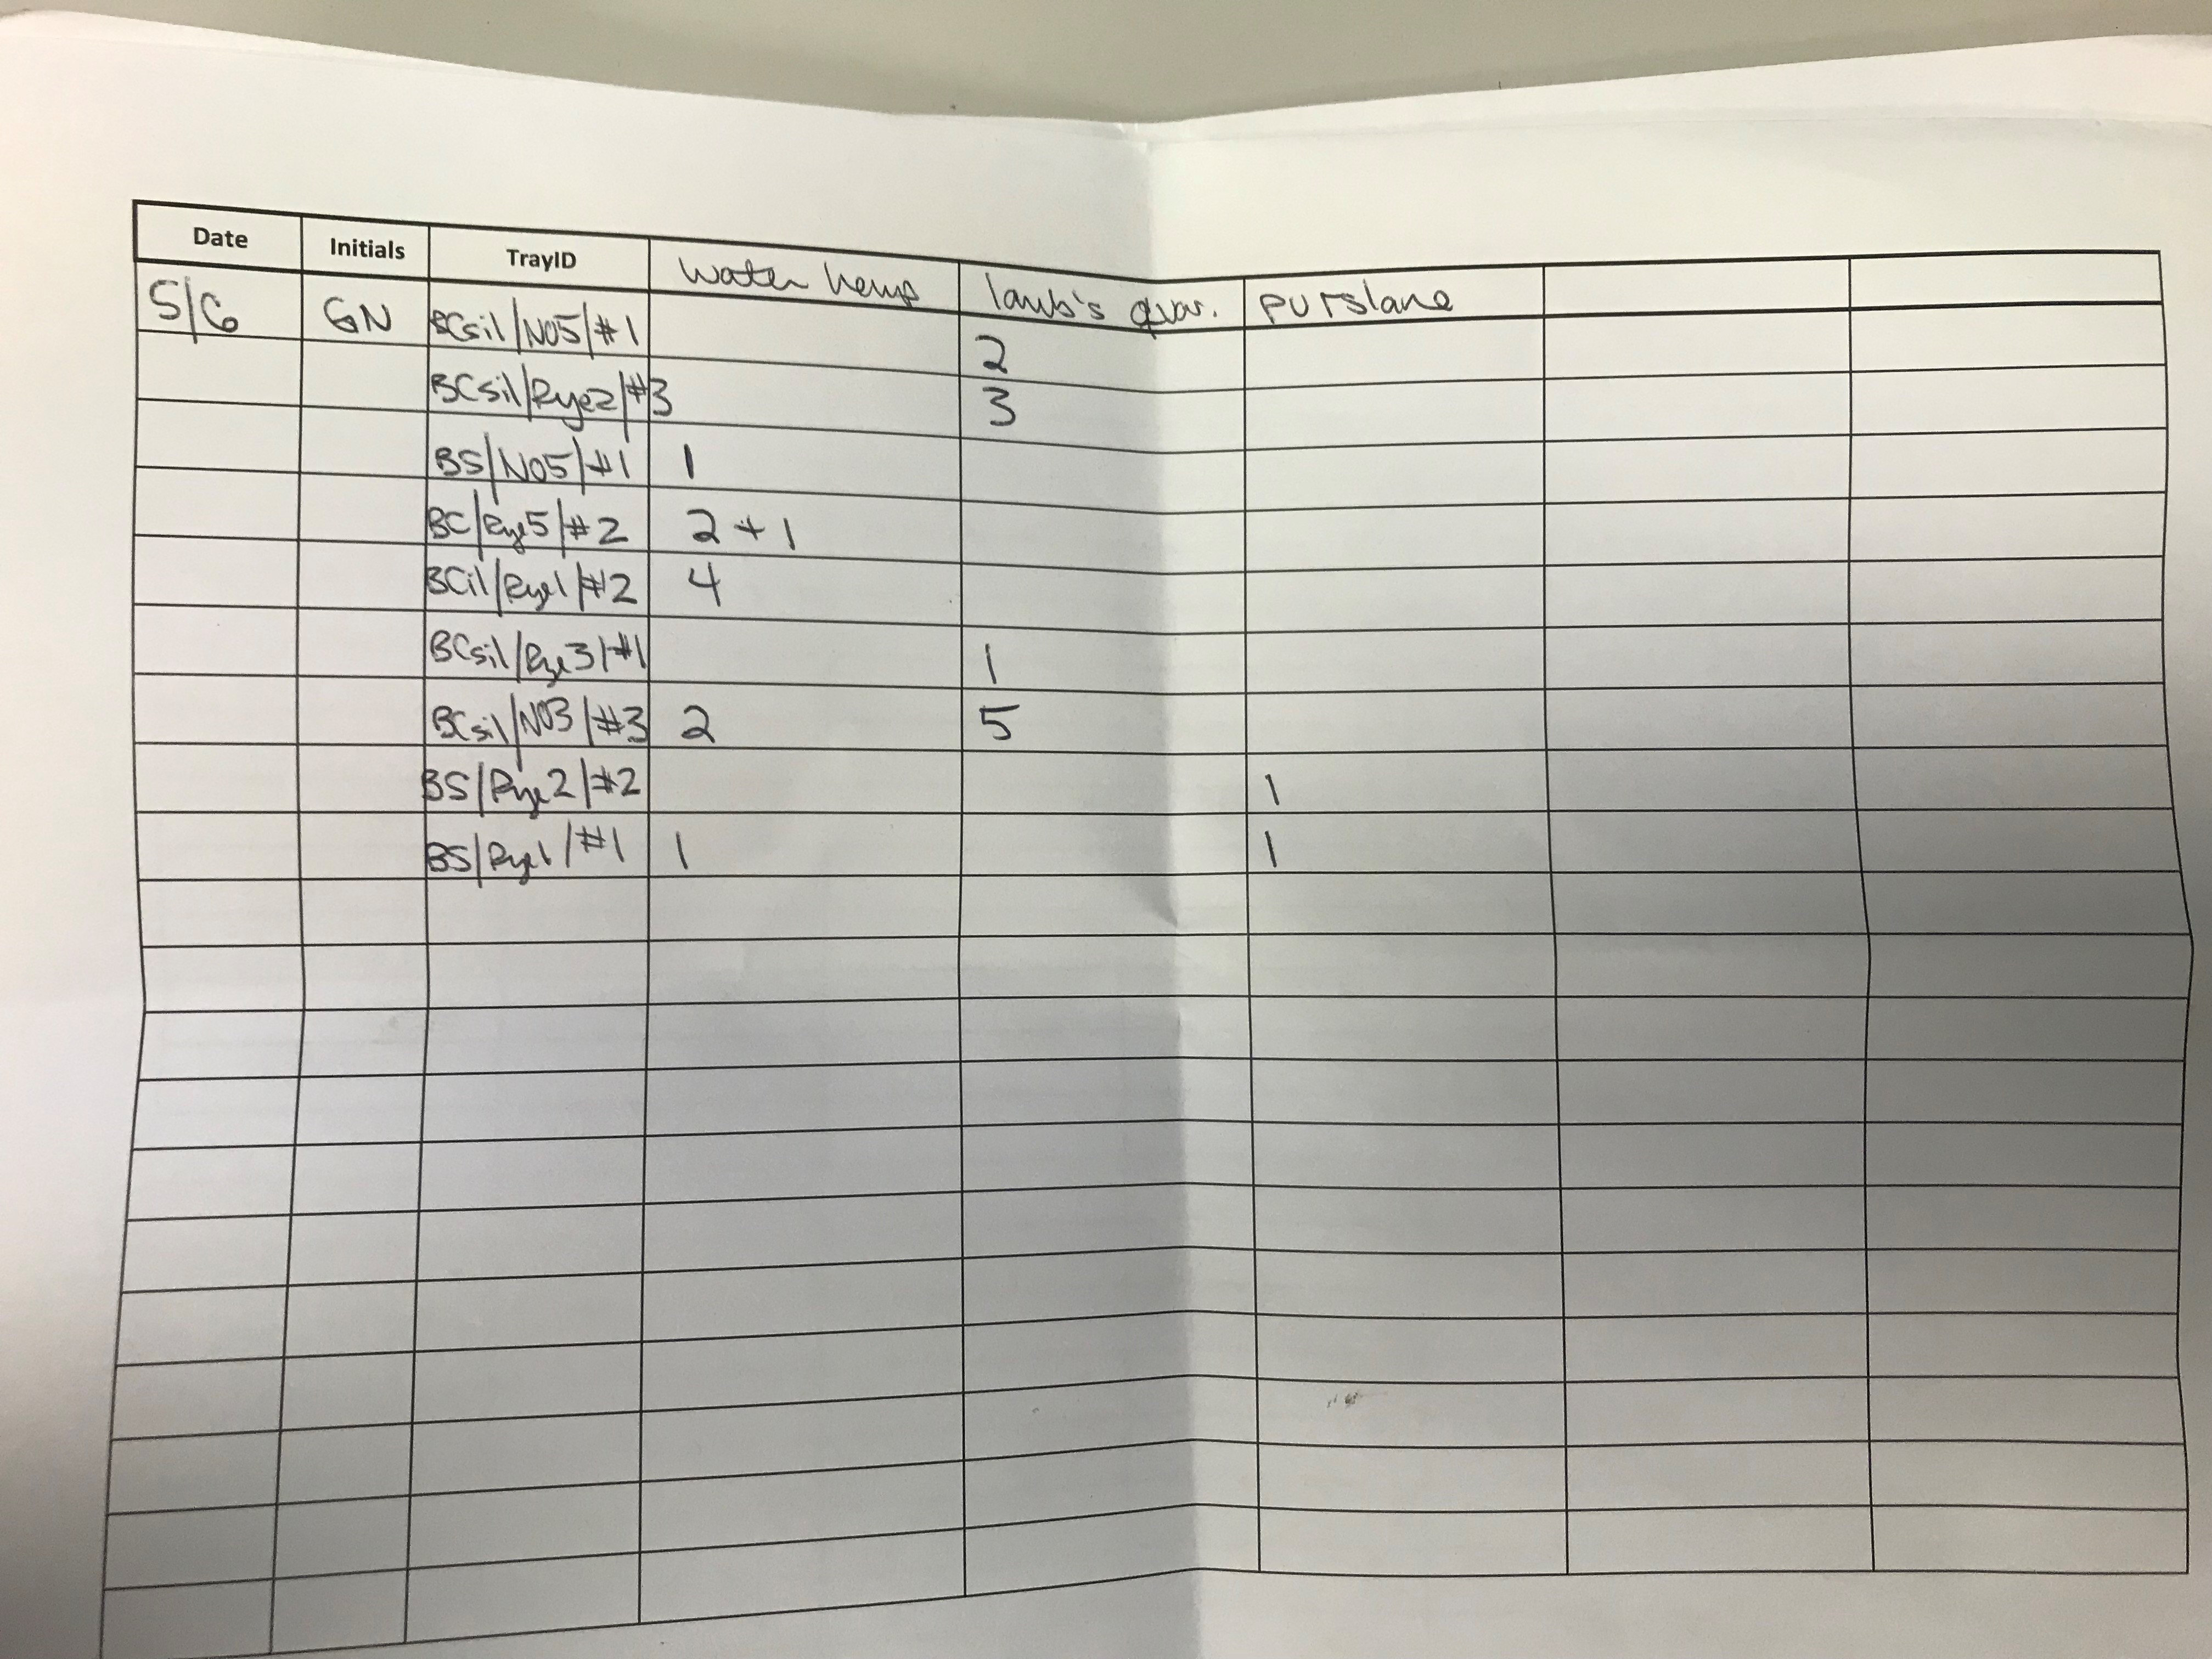 Date Initials TrayID water hemp lamb's quar. purslane
5/6 GN BCsil/NO5/#1 2
BCsil/Rye2/#3 3
BS/NO5/#1 1
BC/Rye5/#2 2 + 1
BCil/Rye1/#2 4
BCsil/Rye3/#1 1
BCsil/NO3/#3 2 5
BS/Rye2/#2 1
BS/Rye1/#1 1 1